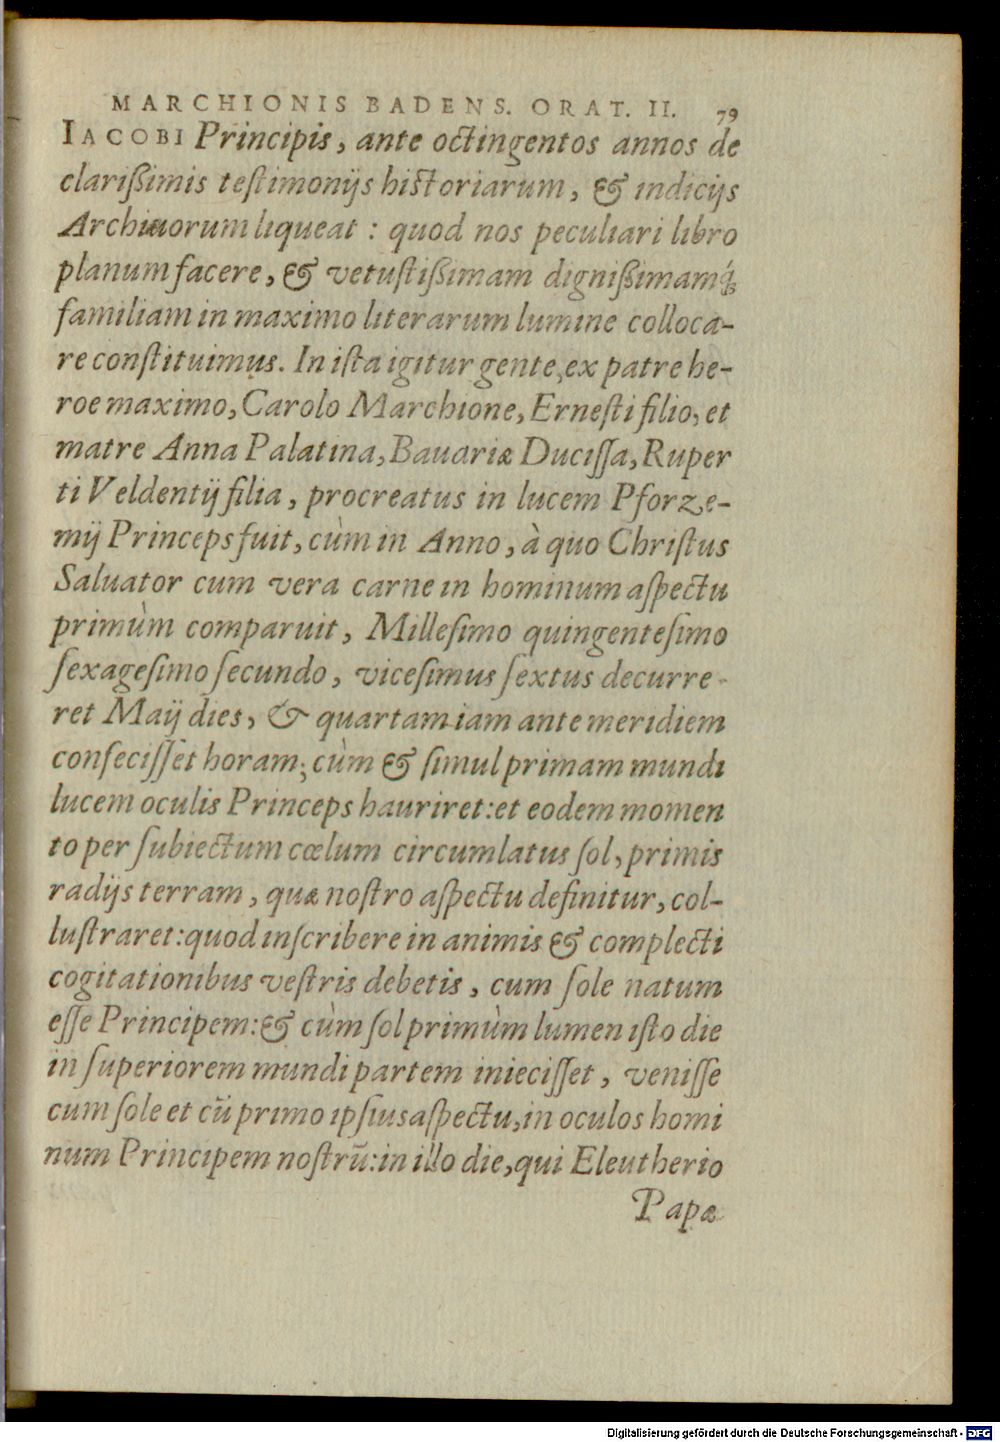 MARCHIONIS BADENS. ORAT. II. 79
IACOBI Principis, ante octingentos annos de
clarißimis testimonijs historiarum, & indicijs
Archiuorum liqueat : quod nos peculiari libro
planum facere, & vetustißimam dignißimamq́;
familiam in maximo literarum lumine colloca-
re constituimus. In ista igitur gente, ex patre he-
roe maximo, Carolo Marchione, Ernesti filio, et
matre Anna Palatina, Bauariæ Ducissa, Ruper
ti Veldentij filia, procreatus in lucem Pforze-
mij Princeps fuit, cùm in Anno, à quo Christus
Saluator cum vera carne in hominum aspectu
primùm comparuit, Millesimo quingentesimo
sexagesimo secundo, vicesimus sextus decurre-
ret Maij dies, & quartam iam ante meridiem
confecisset horam; cùm & simul primam mundi
lucem oculis Princeps hauriret: et eodem momen
to per subiectum cœlum circumlatus sol, primis
radijs terram, quæ nostro aspectu definitur, col-
lustraret: quod inscribere in animis & complecti
cogitationibus vestris debetis, cum sole natum
esse Principem: & cùm sol primùm lumen isto die
in superiorem mundi partem iniecisset, venisse
cum sole et cū primo ipsius aspectu, in oculos homi
num Principem nostrū: in illo die, qui Eleutherio
Papæ
Digitalisierung gefördert durch die Deutsche Forschungsgemeinschaft - DFG